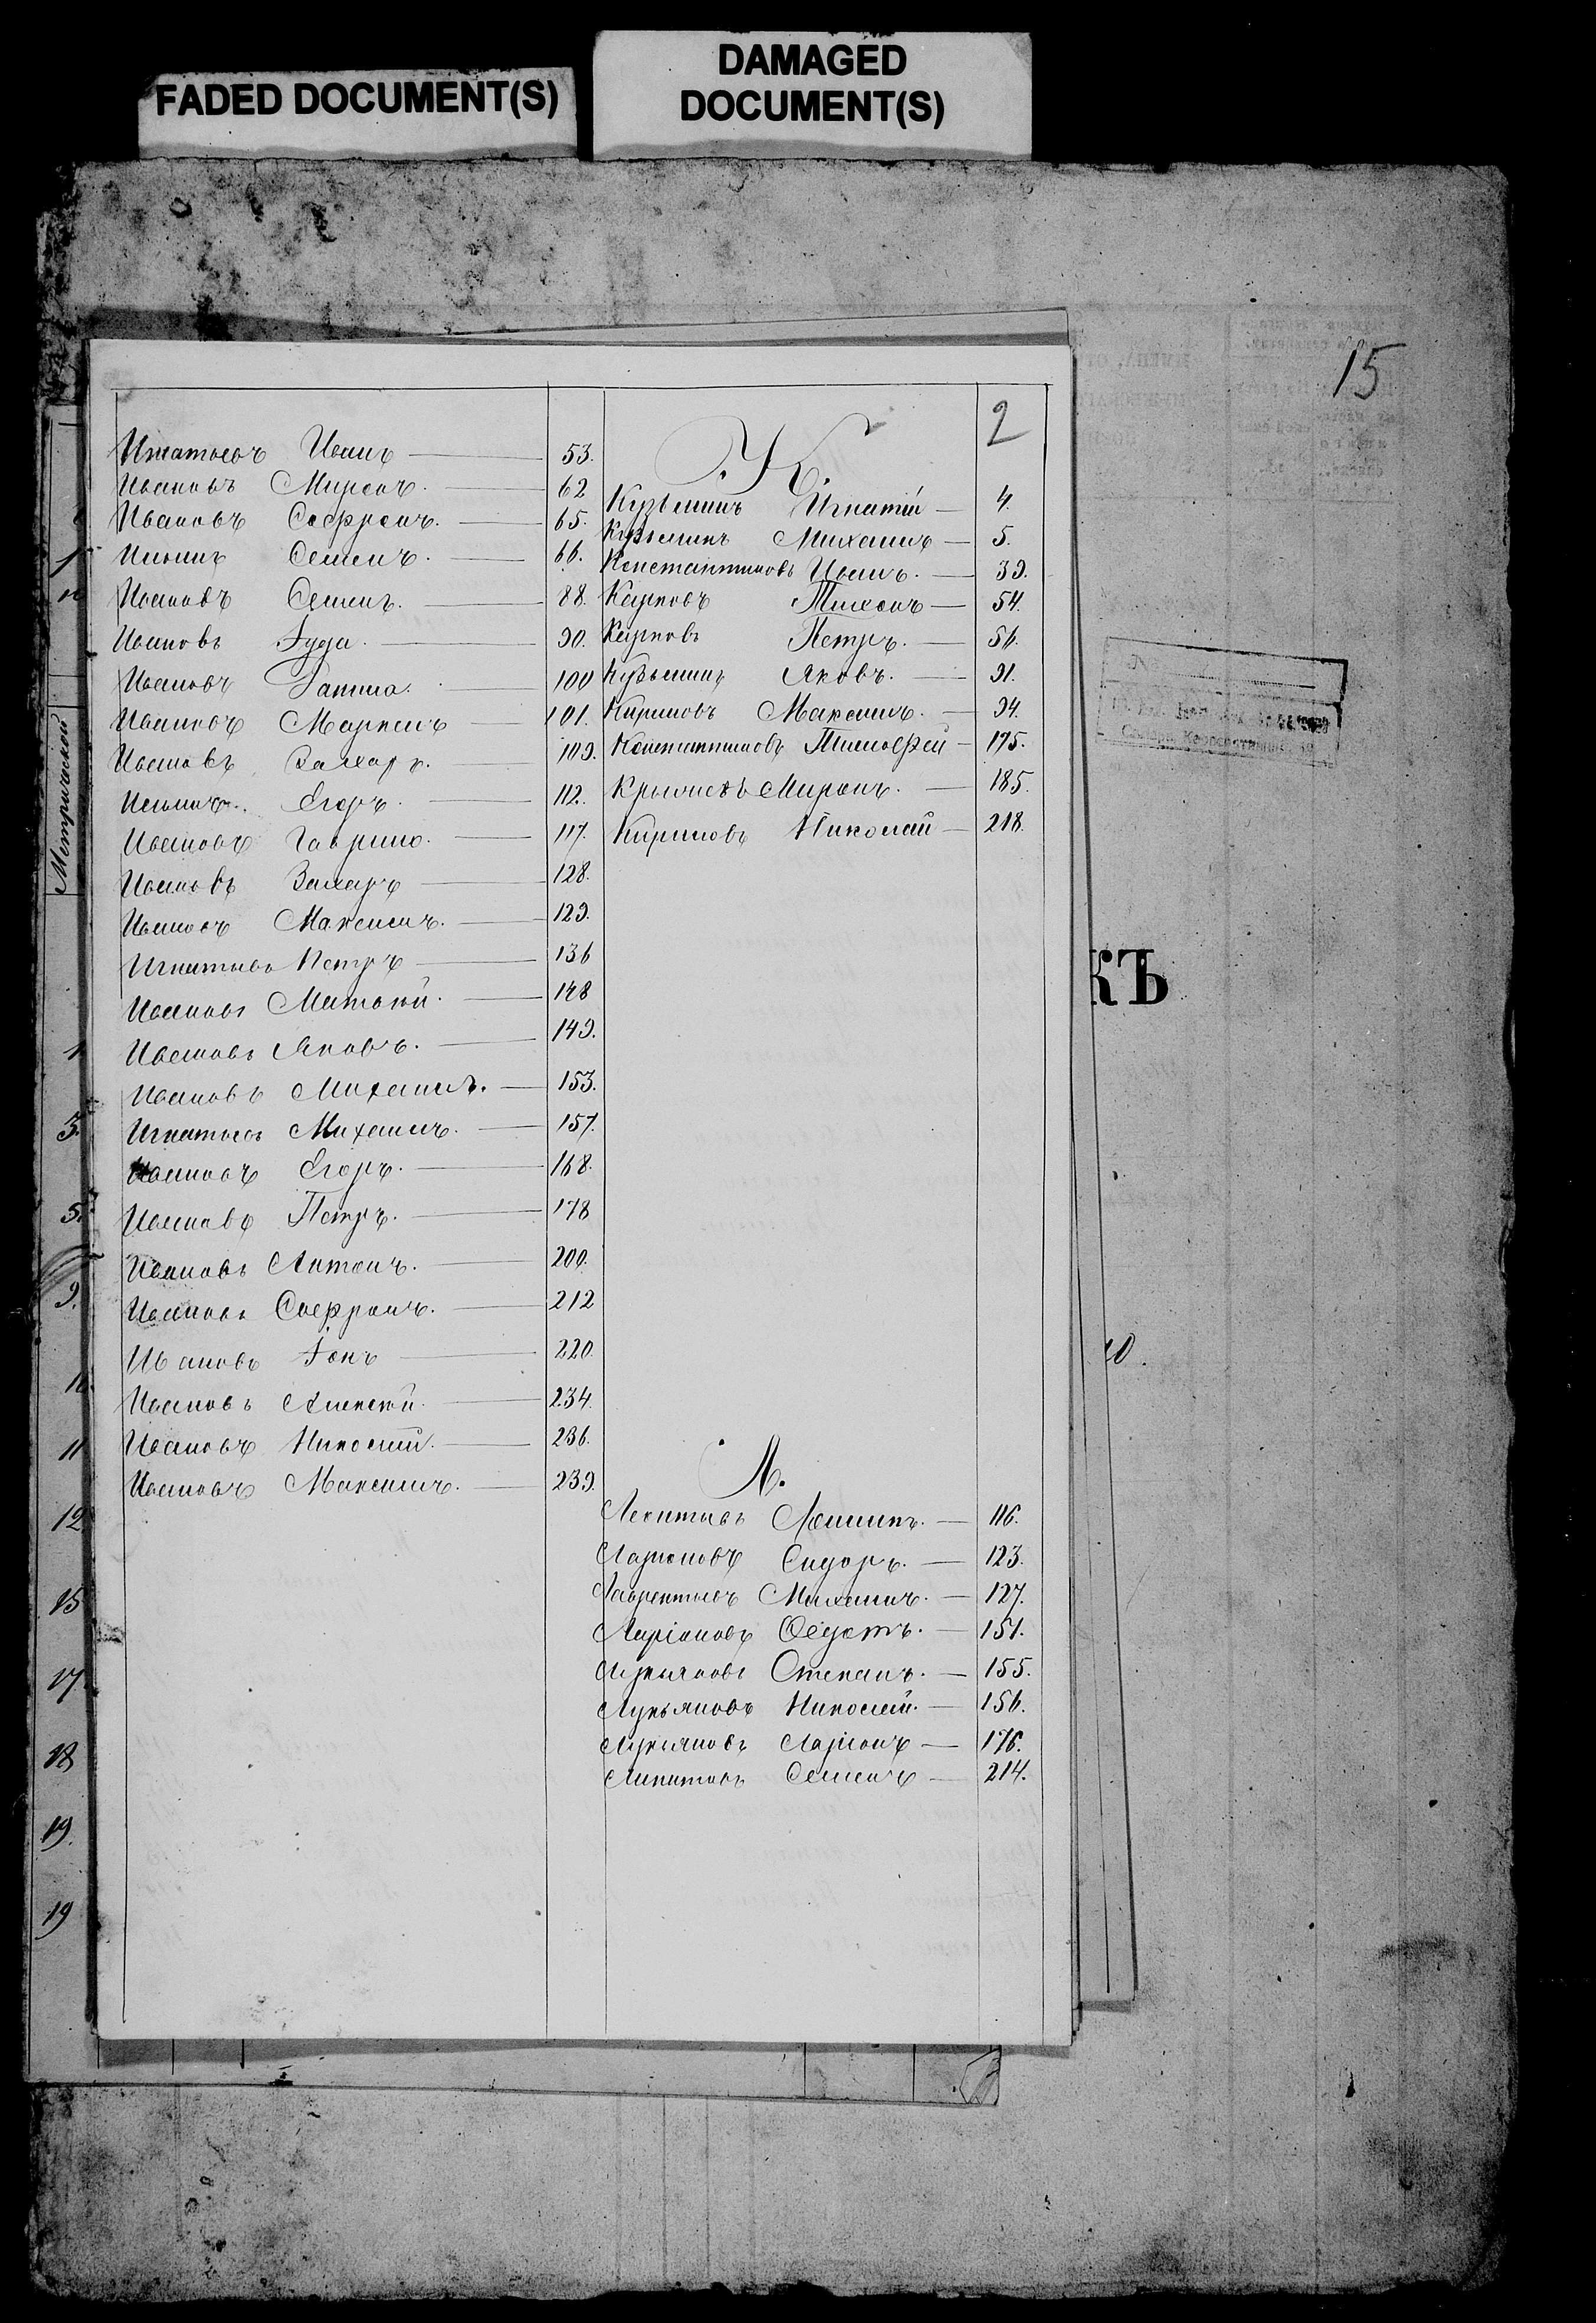 FADED DOCUMENT(S)
DAMAGED
DOCUMENT(S)
15
2
Игнатьевъ Иванъ 53.
Ивановъ Миронъ. 62
Ивановъ Софронъ. 65.
Ильинъ Семенъ. 66.
Ивановъ Семенъ. 88.
Ивановъ Іуда. 90.
Ивановъ 100
Ивановъ Маркелъ 101.
Ивановъ Захаръ. 109.
Ильинъ. Егоръ. 112.
Ивановъ Гаврило. 117.
Ивановъ Захаръ 128.
Ивановъ Максимъ. 129.
Игнатьевъ Петръ 136
Ивановъ Матвѣй. 148
Ивановъ Яковъ. 149.
Ивановъ Михаилъ. 153.
Игнатьевъ Михаилъ. 157.
Ивановъ Егоръ. 168.
Ивановъ Петръ. 178
Ивановъ Антонъ. 200.
Ивановъ Софронъ. 212
Ивановъ Іонъ 220.
Ивановъ Алексѣй. 234.
Ивановъ Николай. 236.
Ивановъ Максимъ. 239.
К.
Кузьминъ Игнатій 4.
Кузьминъ Михаилъ 5.
Константиновъ Иванъ. 39.
Карповъ Тихонъ 54.
Карповъ Петръ. 56.
Кузьминъ Яковъ. 91.
Кириловъ Максимъ. 94.
Константиновъ Тимофей 175.
Миронъ. 185.
Кириловъ Николай 218.
Л.
116.
Ларионовъ Сидоръ. 123.
Лаврентьевъ Михаилъ. 127.
Ларіоновъ Ѳедотъ. 151.
Лукьяновъ Степанъ. 155.
Лукьяновъ Николай. 156.
Лукьяновъ Ларіонъ 176.
Семенъ 214.
Метрической
КЪ